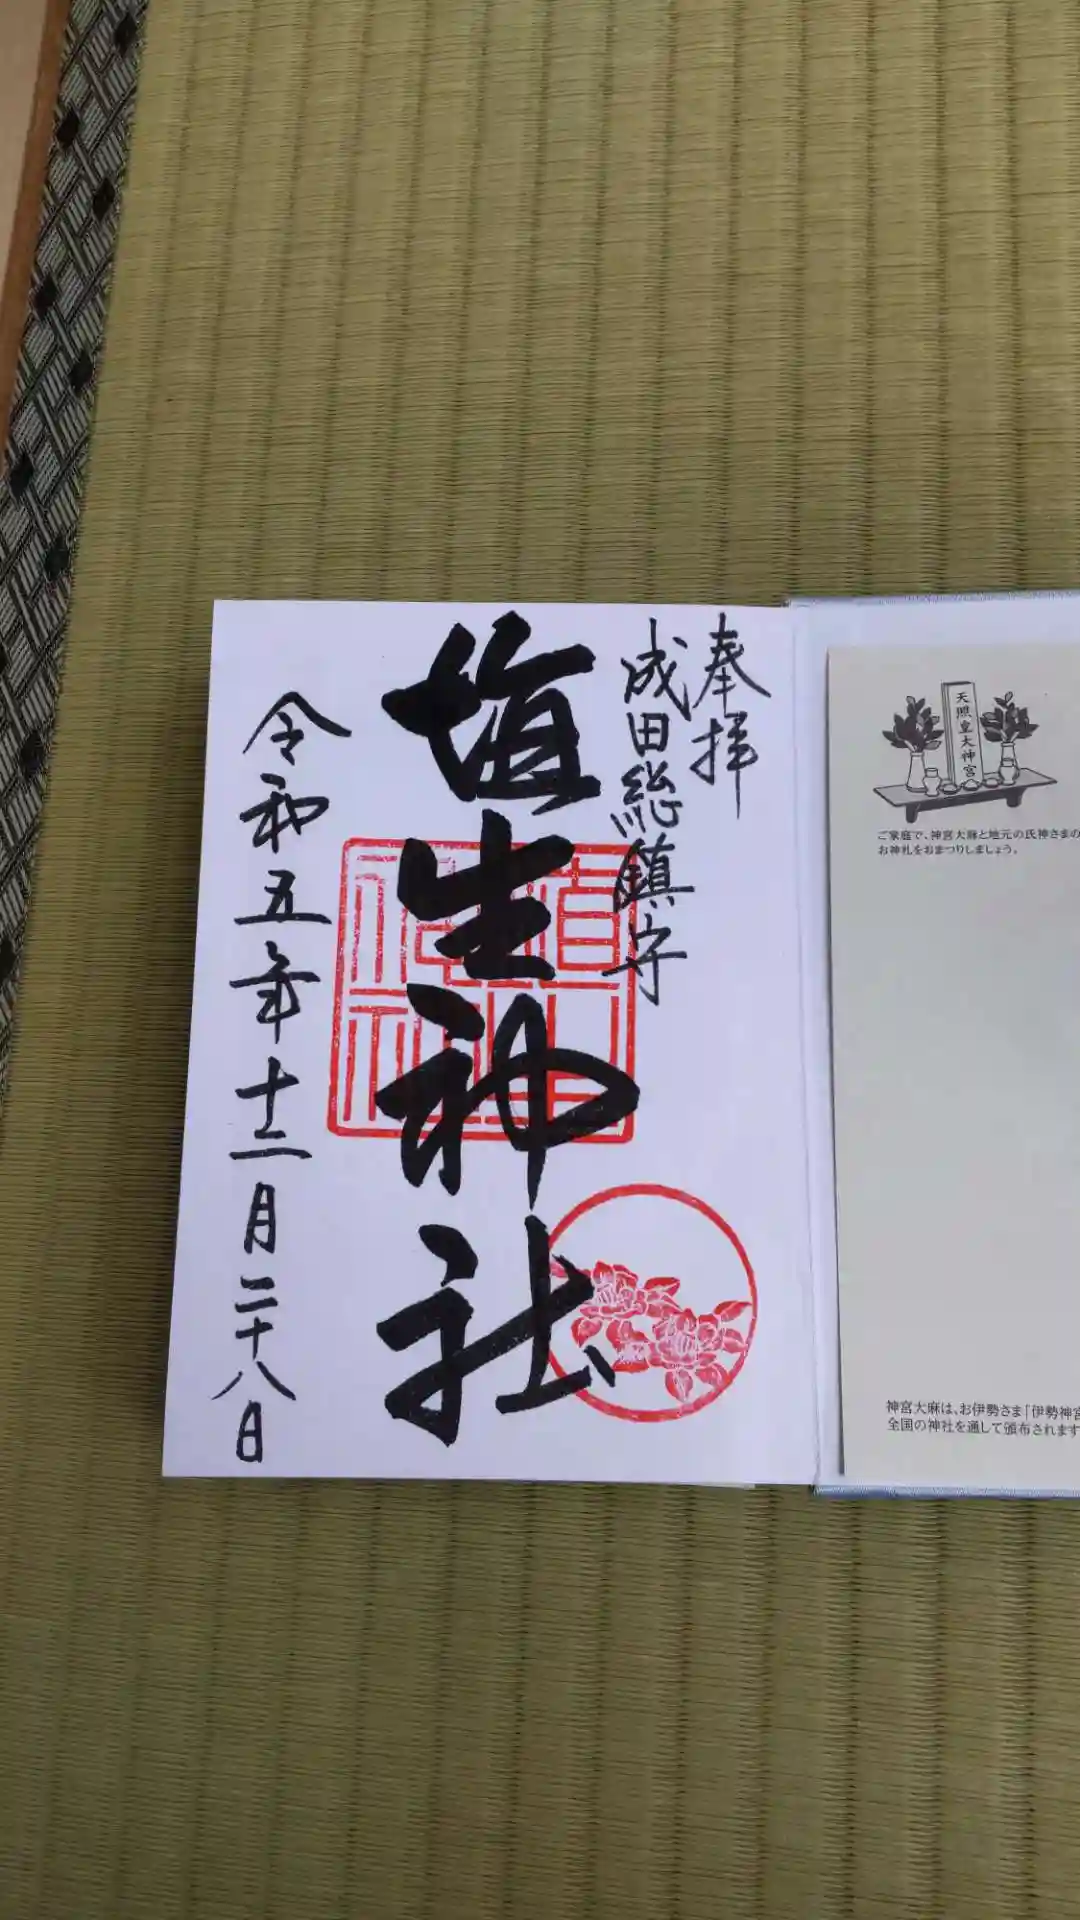 奉拝
成田総鎮守
埴生神社
令和五年十二月二十八日
天照皇大神宮
ご家庭で、神宮大麻と地元の氏神さまの
お神札をおまつりしましょう。
神宮大麻は、お伊勢さま「伊勢神宮
全国の神社を通して頒布されます